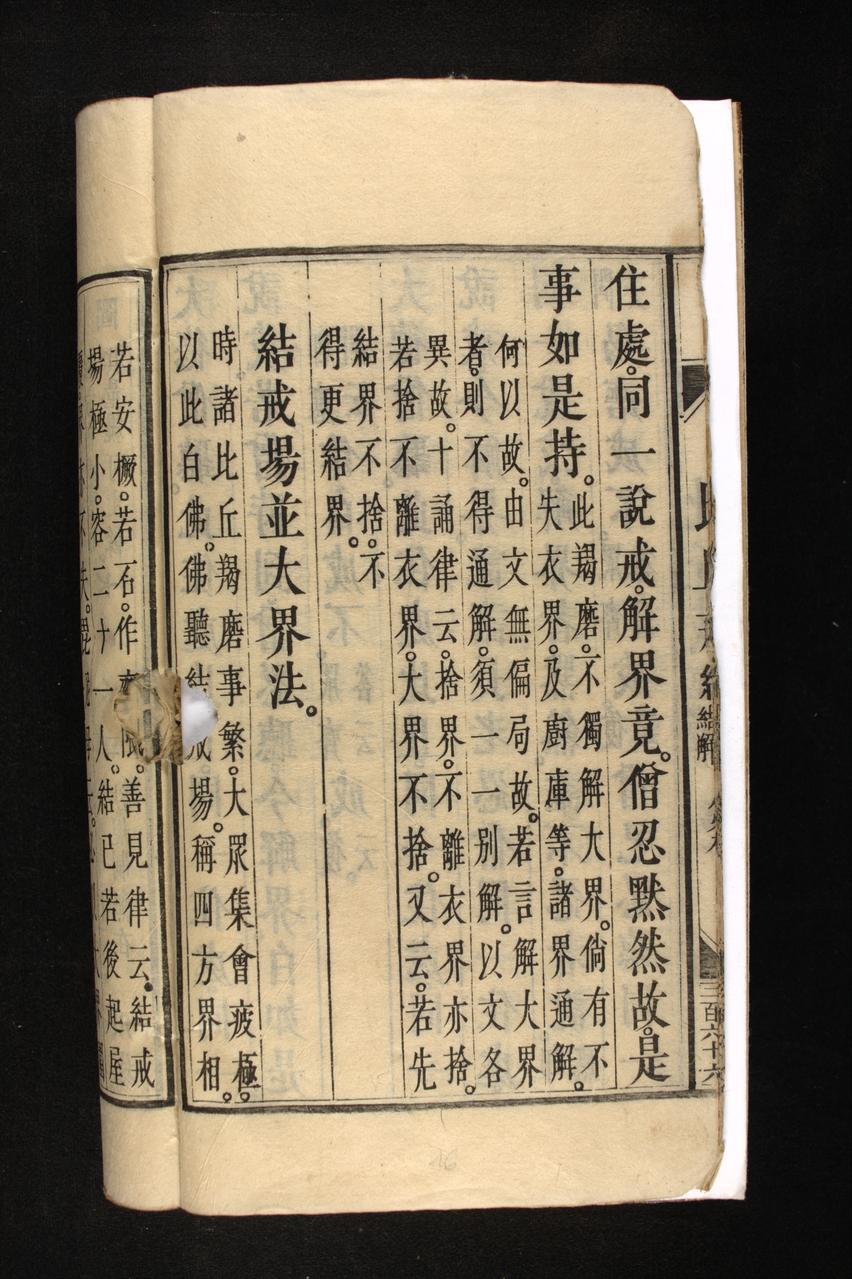 住處。同一說戒。解界竟。僧忍默然故。是
事如是持。
此羯磨。不獨解大界。倘有不
失衣界。及廚庫等。諸界通解。
何以故。由文無偏局故。若言解大界
者。則不得通解。須一一別解。以文各
異故。十誦律云。捨界。不離衣界亦捨。
若捨不離衣界。大界不捨。又云。若先
結界不捨。不
得更結界。
結戒場並大界法。
時諸比丘羯磨事繁。大眾集會疲極。
以此白佛。佛聽結戒場。稱四方界相。
若安橛。若石。作善見律云。結戒
場極小。容二十一人。結已若後起屋
結解
三百六十六